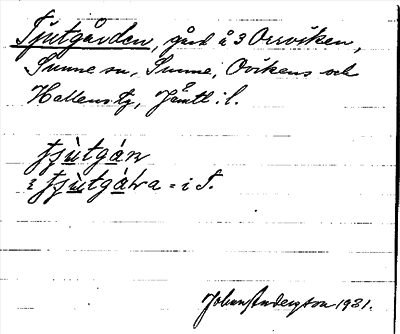 Tjutgården, gård å 3 Orrviken,
Sunne sn, Sunne, Ovikens och
Hallens tg, Jämtl: l.
tjùtgáɳ
i tjùtgáɽa = i T.
Johan Anderson 1931.